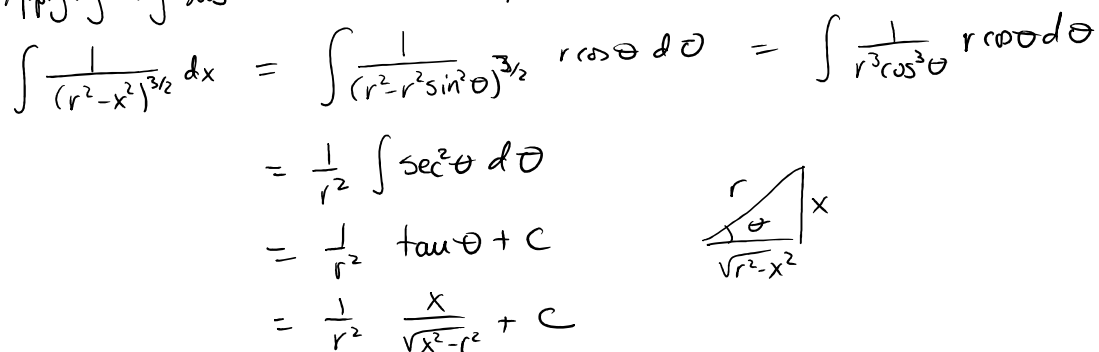 Applying
∫ 1/(r²-x²)^{3/2} dx = ∫ 1/(r²-r²sin²θ)^{3/2} r cosθ dθ = ∫ 1/(r³cos³θ) r cosθ dθ
= 1/r² ∫ sec²θ dθ
= 1/r² tanθ + C
r θ x √(r²-x²)
= 1/r² x/√(x²-r²) + C